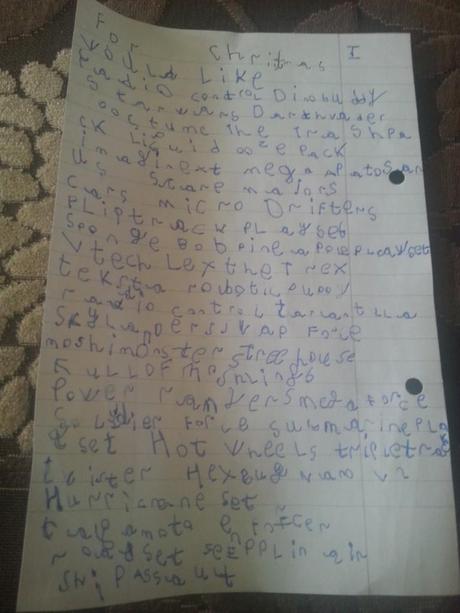 For Chritmas I
Would Like
radio control Dinobuddy
Starwars Darthvader
costume the Trash pa
ck Liquid ooze pack
imaginext mega apatosaur
us Scare majors
cars micro Drifters
Fliptrack playset
Sponge Bob pineapple playset
Vtech Lex the Trex
teksta robotic puppy
radio control tarantula
SKYLanders swap Force
moshimonster tree house
FULL OF
Power rangers mega force
soldier Force submarine pla
yset Hot wheels triple tra
twister Hexbug nano v2
Hurricane set
road set